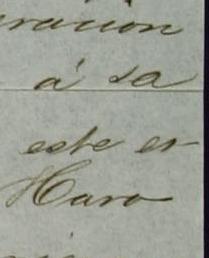 eracion
á sa
este es
Haro